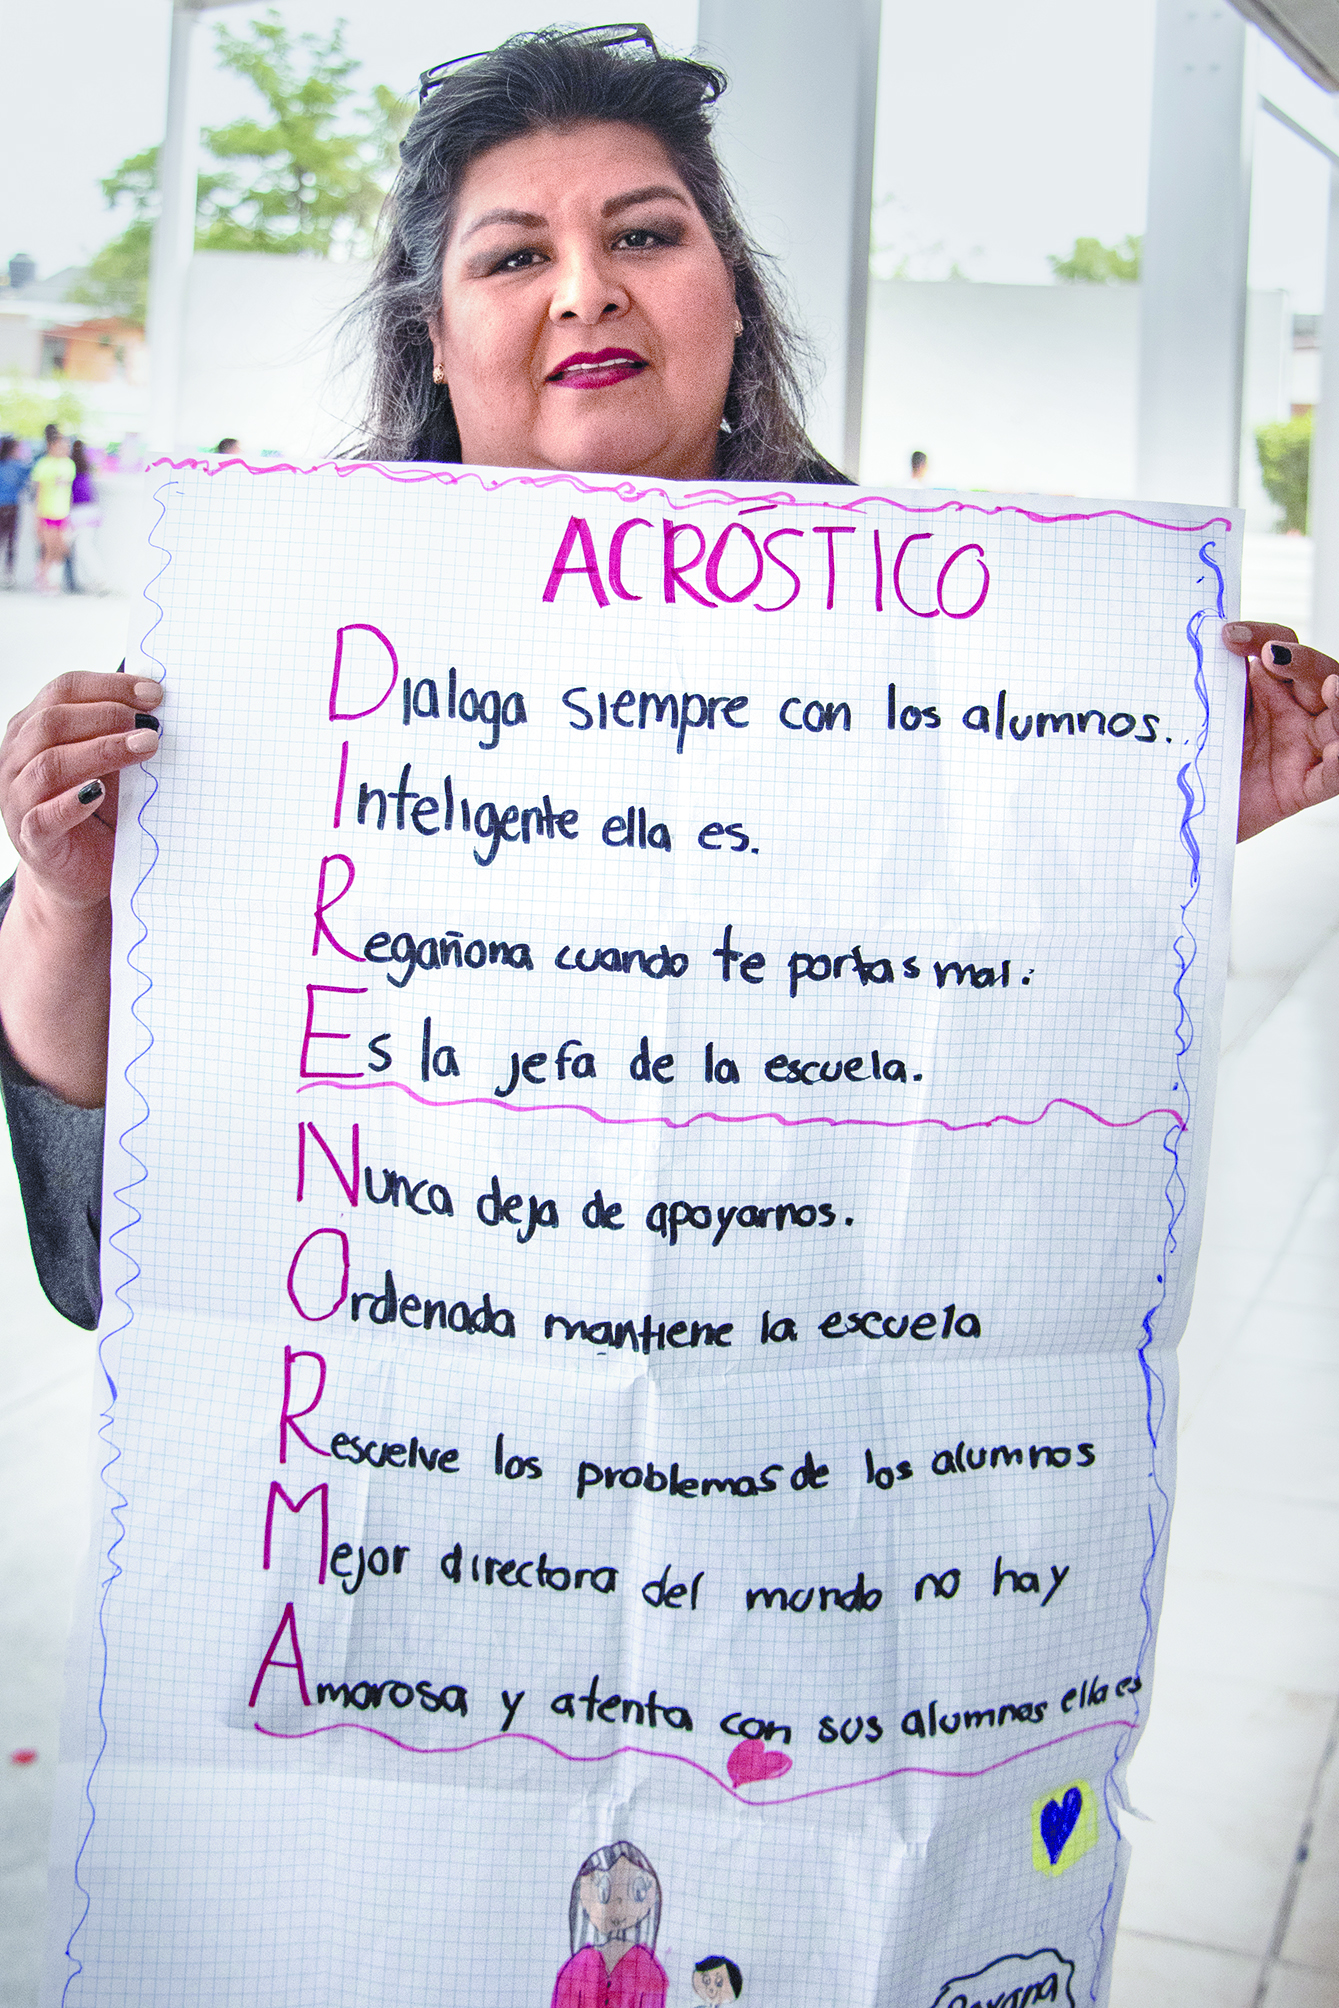 ACRÓSTICO
Dialoga siempre con los alumnos.
Inteligente ella es.
Regañona cuando te portas mal.
Es la jefa de la escuela.
Nunca deja de apoyarnos.
Ordenada mantiene la escuela
Resuelve los problemas de los alumnos
Mejor directora del mundo no hay
Amorosa y atenta con sus alumnos ella es